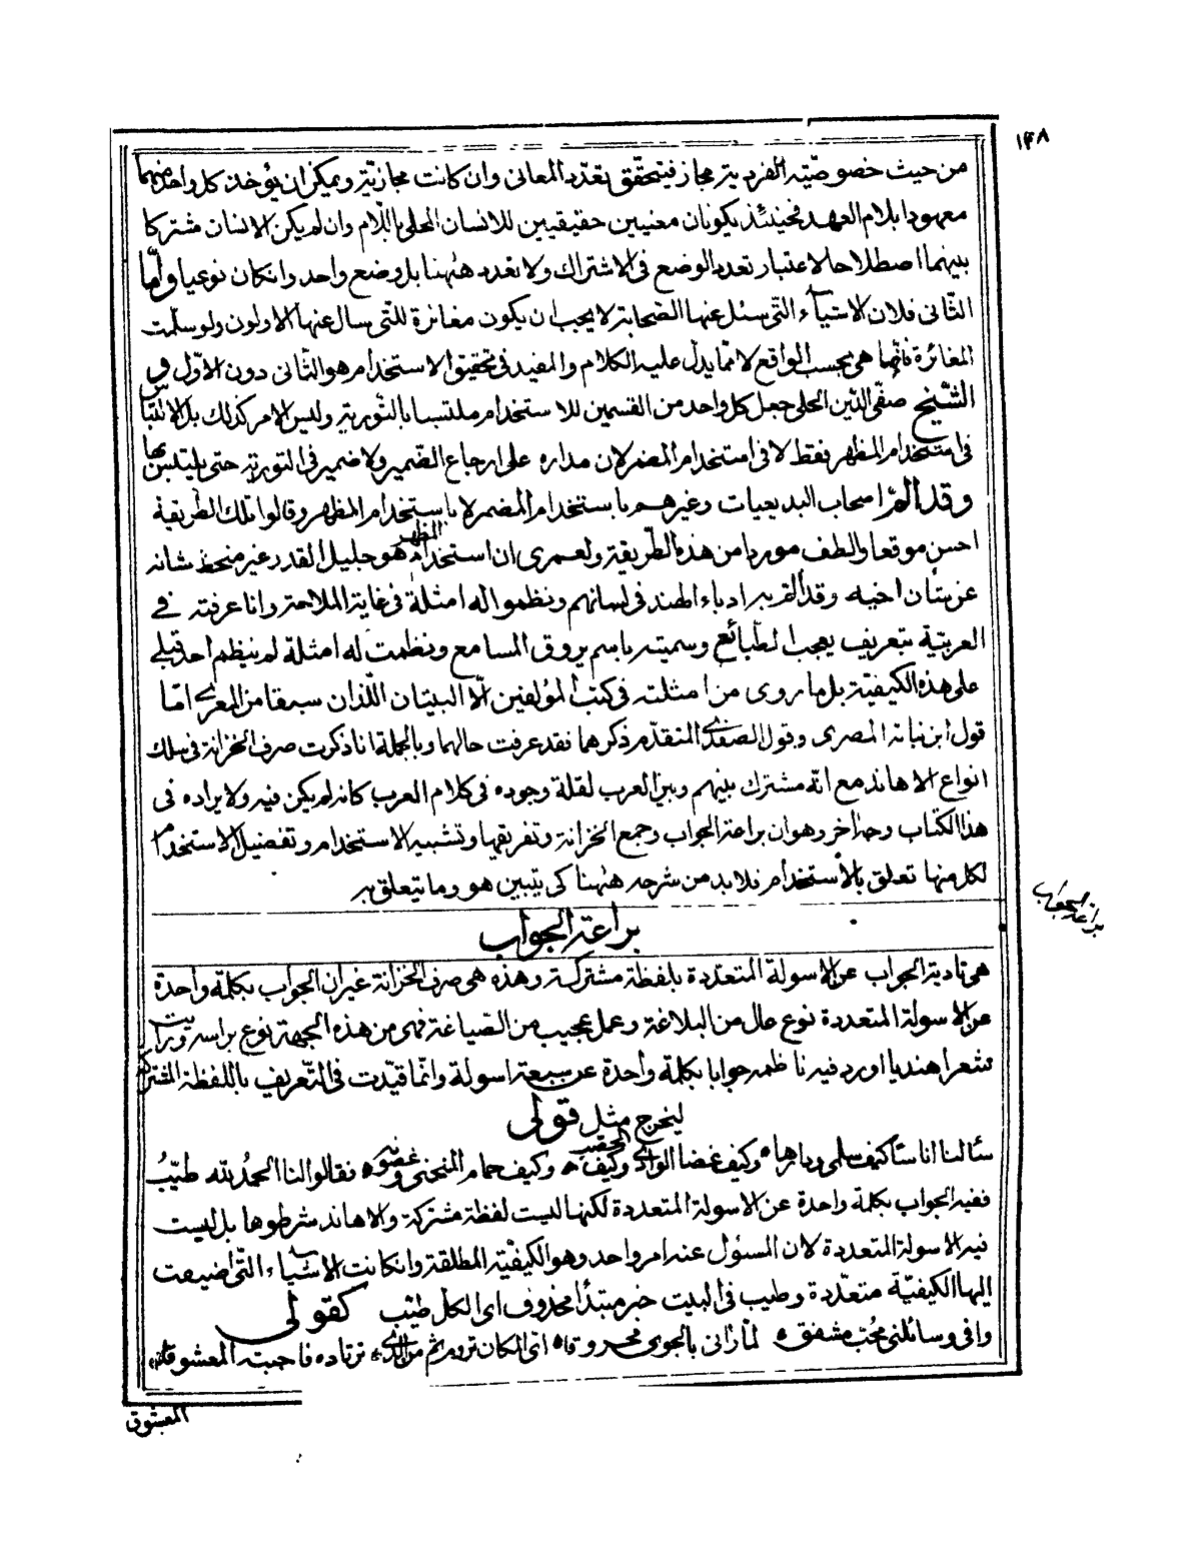 ١٤٨
من حيث خصوصيّته الفردية مجاز فيتحقّق تعدّد المعانى وان كانت مجازيّة ويمكن ان يؤخذ كل واحد منهما
معهودا بلام العهد فحينئذ يكونان معنيين حقيقيين للانسان المحلى باللّام وان لم يكن الانسان مشتركا
بينهما اصطلاحا لاعتبار تعدد الوضع فى الاشتراك ولا تعدد ههنا بل وضع واحد وانكان نوعيا وامّا
الثّانى فلان الاشياء التى سئل عنها الصّحابة لا يجب ان يكون مغائرة للتى سال عنها الاولون ولو سلمت
المغائرة فانّها هى بحسب الواقع لا ممّا يدل عليه الكلام والمفيد فى تحقيق الاستخدام هو الثانى دون الاوّل و
الشيخ صفى الدّين الحلى جعل كل واحد من القسمين للاستخدام ملتبسا بالتّورية وليس الامر كذلك بل الالتباس
فى استخدام المظهر فقط لا فى استخدام المضمر لان مداره على ارجاع الضّمير ولا ضمير فى التورية حتى يلتبس بها
وقد الفر اصحاب البديعيات وغيرهم باستخدام المضمر لا باستخدام المظهر وقالوا تلك الطريقة
احسن موقعا والطف موردا من هذه الطّريقة ولعمرى ان استخدام المظهر هو جليل القدر غير منحط شانه
عن شأن اخيه وقد الفر به ادباء الهند فى لسانهم ونظموا له امثلة فى غاية الملاحة وانا عرفته فى
العربيّة بتعريف يعجب الطبائع وسميته باسم يروق المسامع ونظمت له امثلة لم ينظم احد قبلى
على هذه الكيفيّة بل ما روى من امثلته فى كتب المؤلفين الّا البيتان اللّذان سبقا من المعرى امّا
قول ابن نباتة المصرى وقول الصفدى المتقدّم ذكرهما فقد عرفت حالهما وبالجملة انا ذكرت صرف الخزانة فى سلك
انواع الاهاند مع انّه مشترك بينهم وبين العرب لقلة وجوده فى كلام العرب كانه لم يكن فيه ولايراده فى
هذا الكتاب وجه اخر وهوان براعة الجواب وجمع الخزانة وتفريقها وتشبيه الاستخدام وتفضيل الاستخدام
لكل منها تعلق بالاستخدام فلابد من شرحه ههنا كى يتبين هو وما يتعلق به
براعة الجواب
براعة الجواب
هى تادية الجواب عن الاسولة المتعددة بلفظة مشتركة وهذه هى صرف الخزانة غير ان الجواب بكلمة واحدة
عن الاسولة المتعددة نوع عال من البلاغة وعمل عجيب من الصّياغة فهى من هذه الجهة نوع براسه ورايت
شعرا هنديا اورد فيه ناظمه جوابا بكلمة واحدة عن سبعة اسولة وانّما قيّدت فى التّعريف باللفظة المشتركة
ليخرج مثل قولى
سألنا اناسا كيف سلمى ودارها ه وكيف غضا الوادى وكيف العقيق ه وكيف حمام المنحنى وغصونه ه فقالوا لنا الحمد لله طيّبُ
ففيه الجواب بكلمة واحدة عن الاسولة المتعددة لكنها ليست لفظة مشتركة والاهاند شرطوها بل ليست
فيه الاسولة المتعددة لان المسئول عنه امر واحد وهو الكيفيّة المطلقة وانكانت الاشياء التى اضيفت
إليها الكيفيّة متعدّدة وطيب فى البيت خبر مبتدأ محذوف اى الكل طيّب كقولى
وافى وسائلنى محب مشفق ه لمّا رانى بالجوى محروقا ه اىّ المكان تروم ثم من الذى ه ترتاده فاجبته المعشوقا
المعشوق